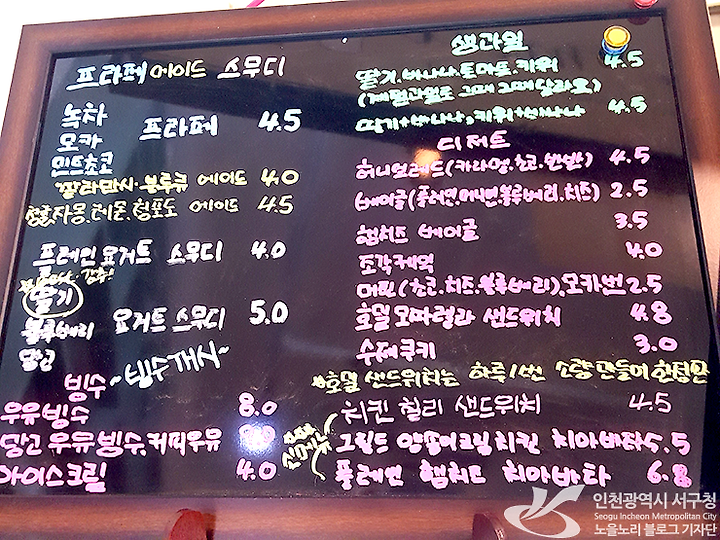 프라페 에이드 스무디
녹차
모카 프라페 4.5
민트초코
깔라만시·블루큐 에이드 4.0
청포자몽,레몬,청포도 에이드 4.5
프레인 요거트 스무디 4.0
딸기
블루베리 요거트 스무디 5.0
망고
빙수 ~빙수개시~
우유빙수 8.0
망고 우유빙수,커피우유
아이스크림 4.0
생과일
딸기.바나나.토마토.키위 4.5
(계절과일로 그때그때 달라요)
딸기+바나나,키위+바나나 4.5
디저트
허니브레드(카라멜.초코.반반) 4.5
베이글(플레인,어니언,블루베리,치즈) 2.5
햄치즈 베이글 3.5
조각케익 4.0
머핀(초코.치즈.블루베리),모카번 2.5
호밀 모짜렐라 샌드위치 4.8
수제쿠키 3.0
*호밀 샌드위치는 하루1번 소량 만들어 한정판
치킨 칠리 샌드위치 4.5
신메뉴 그릴드 양파크림치킨 치아바타 5.5
플레인 햄치즈 치아바타 6.8
인천광역시 서구청
Seogu Incheon Metropolitan City
노을노리 블로그 기자단